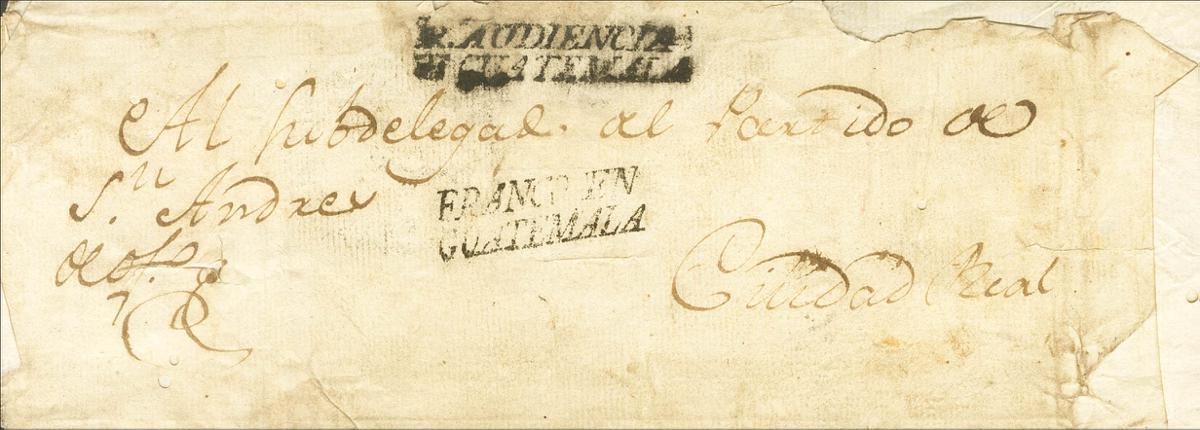 R. AUDIENCIA
GUATEMALA
Al Subdelegad.º al Partido de
S.n Andres
FRANCO EN
GUATEMALA
de of.º
Ciudad Real